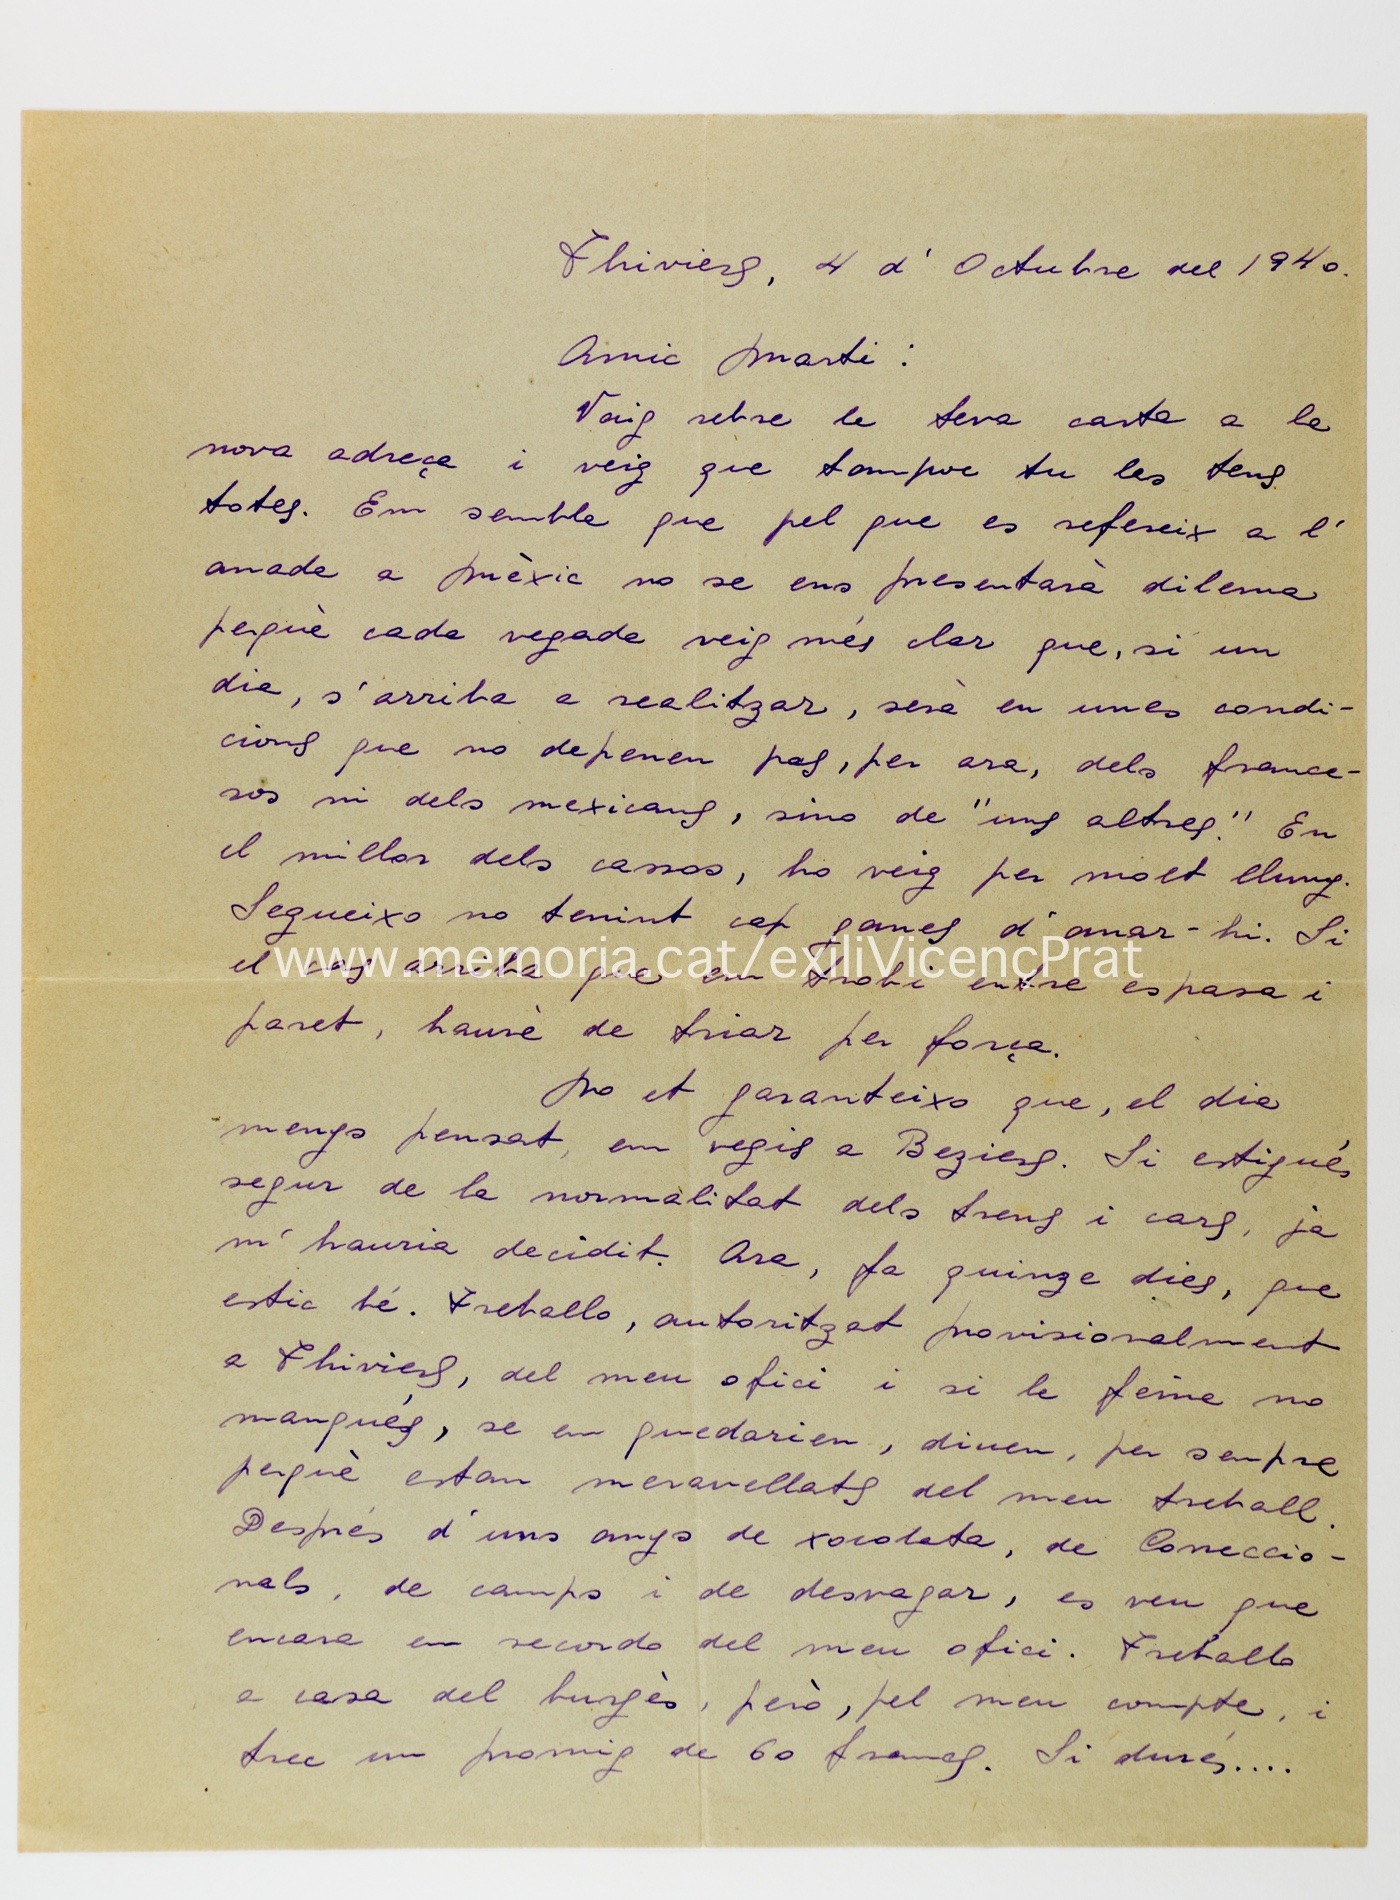 Thiviers, 4 d' Octubre del 1940.
Amic Marti:
Vaig rebre la teva carta a la
nova adreça i veig que tampoc tu les tens
totes. Em sembla que pel que es refereix a l'
anada a Mèxic no se ens presentarà dilema
perquè cada vegada veig més clar que, si un
dia, s'arriba a realitzar, serà en unes condi-
cions que no depenen pas, per ara, dels france-
sos ni dels mexicans, sino de "uns altres." En
el millor dels cassos, ho veig per molt lluny.
Segueixo no tenint cap ganes d'anar-hi. Si
el cas arriba que em trobi entre espasa i
www.memoria.cat/exiliVicencPrat
paret, haurè de triar per força.
No et garanteixo que, el dia
menys pensat, em vegis a Beziers. Si estigués
segur de la normalitat dels trens i cars, ja
m'hauria decidit. Ara, fa quinze dies, que
estic bé. Treballo, autoritzat provisionalment
a Thiviers, del meu ofici i si la feina no
manqués, se em quedarien, diuen, per sempre
perquè estan meravellats del meu treball.
Després d'uns anys de xocolata, de Correccio-
nals, de camps i de desvagar, es veu que
encara em recordo del meu ofici. Treballo
a casa del burgès, però, pel meu compte, i
trec un promig de 60 francs. Si durés....